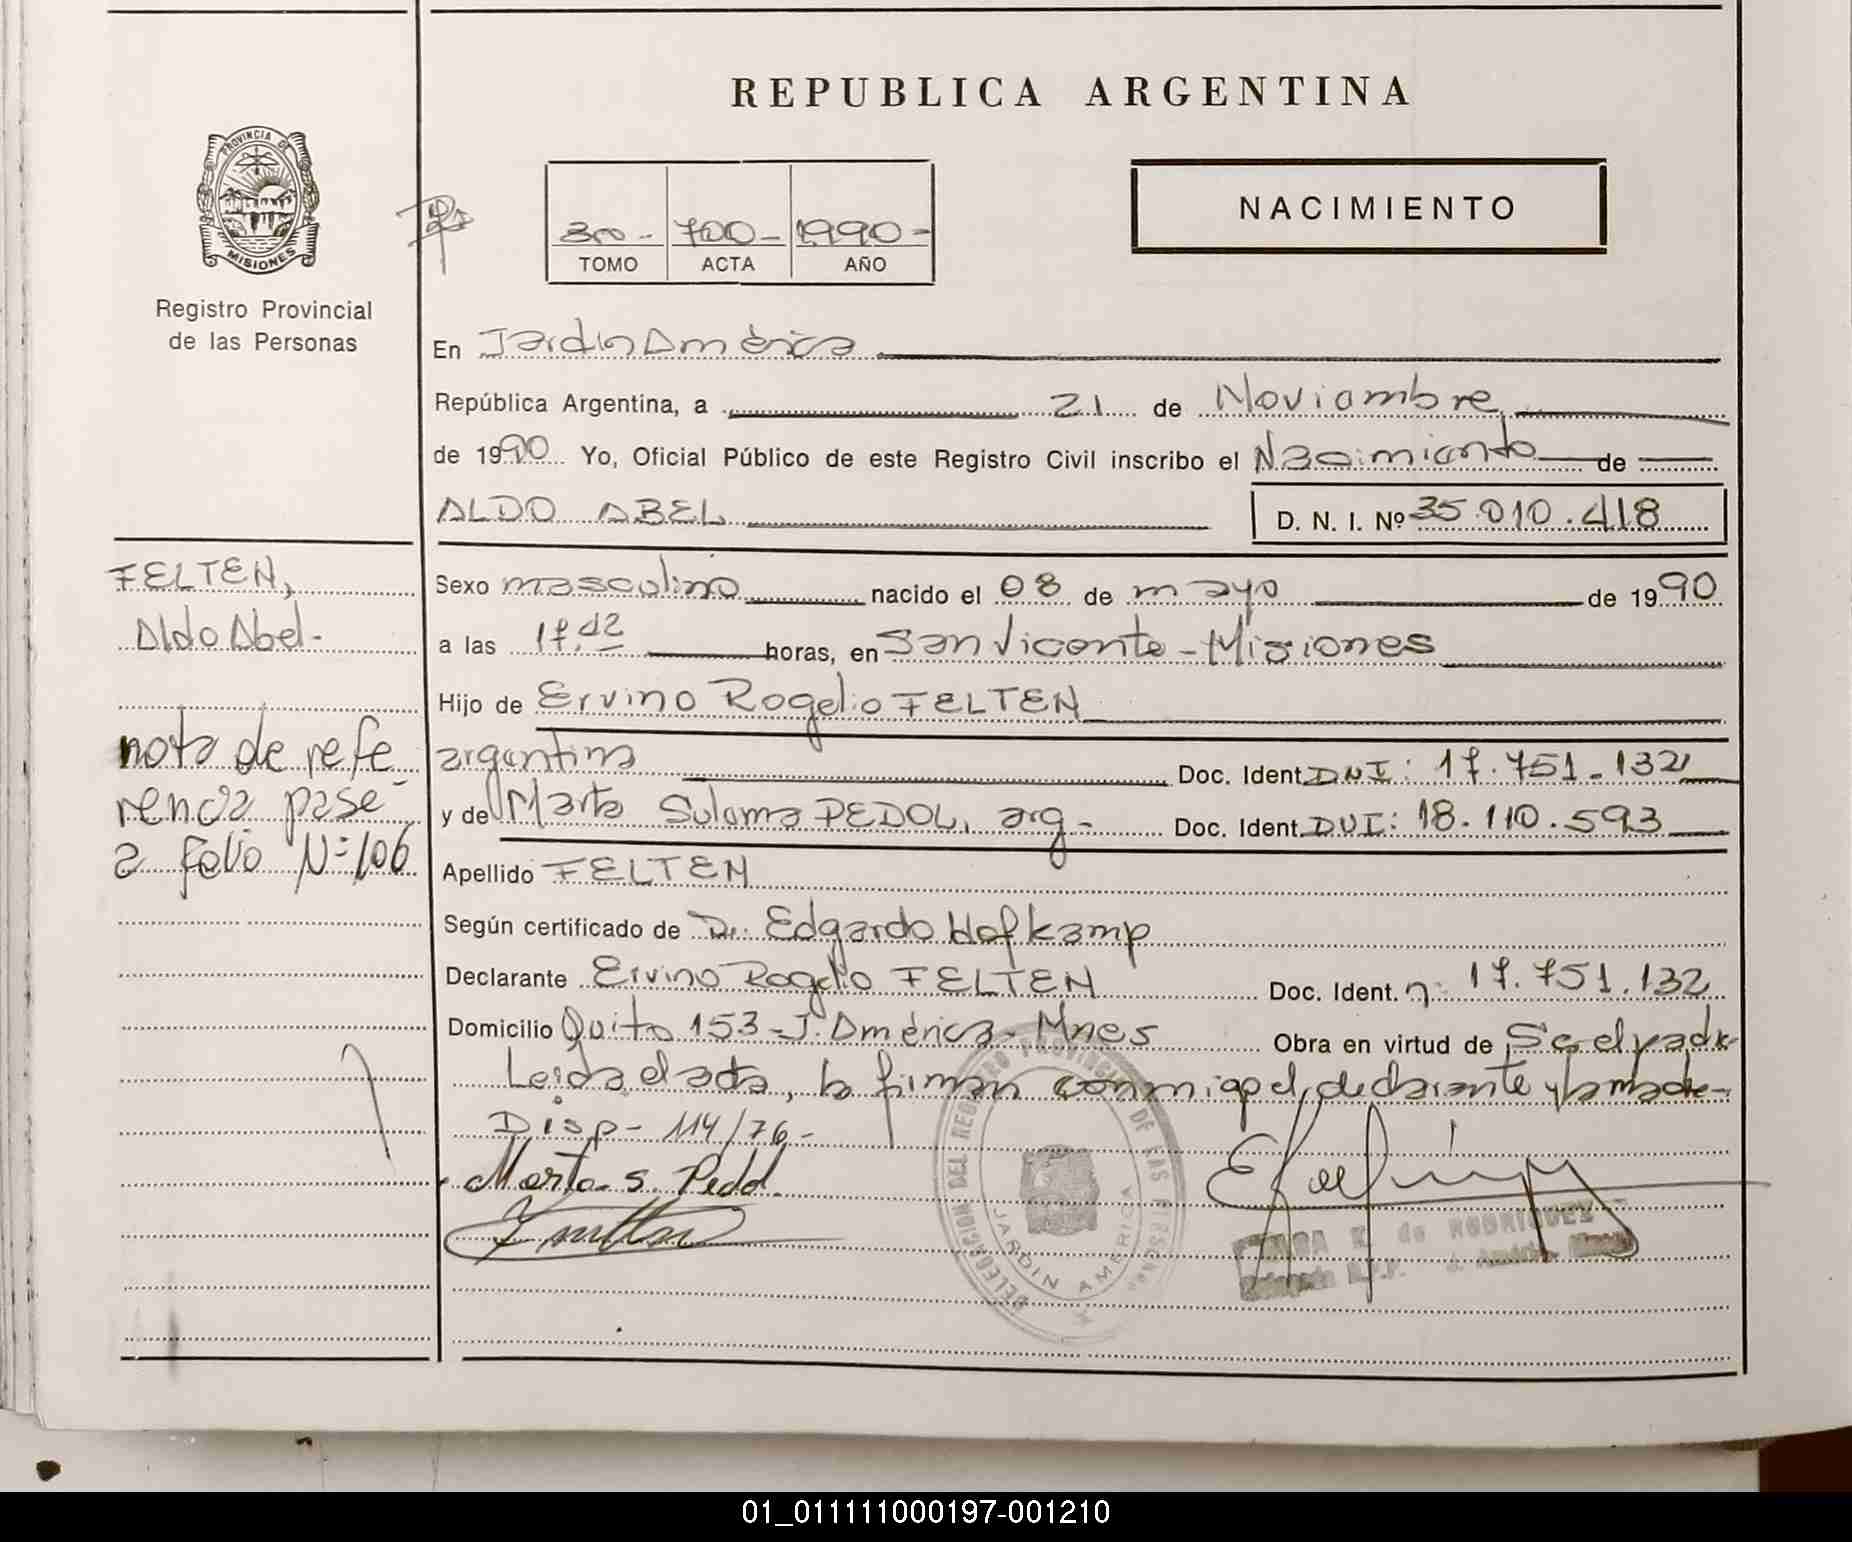 REPUBLICA ARGENTINA
PROVINCIA DE
MISIONES
Registro Provincial
de las Personas
700- 1990-
TOMO ACTA AÑO
NACIMIENTO
En Jardin América
República Argentina, a 21 de Noviembre
de 1990 Yo, Oficial Público de este Registro Civil inscribo el Nacimiento de
ALDO ABEL D. N. I. Nº 35.010.418
FELTEN,
Aldo Abel-
nota de refe
rencia pase
a folio Nº 106
Sexo masculino nacido el 08 de mayo de 1990
a las horas, en San Vicente - Misiones
Hijo de Ervino Rogelio FELTEN
argentino Doc. Ident. DNI: 17.751.132
y de Marta PEDOL, arg- Doc. Ident. DNI: 18.110.593
Apellido FELTEN
Según certificado de Dr. Edgardo Hofkamp
Declarante Ervino Rogelio FELTEN Doc. Ident. nº 17.751.132
Domicilio Quito 153-J. América- Mnes Obra en virtud de Ser el padre
Leida el acta, la firman conmigo el declarante y la madre-
Disp- 114/76-
Marta S. Pedol.
DELEGACION DEL REGISTRO PROVINCIAL DE LAS PERSONAS
JARDIN AMERICA
de RODRIGUEZ
01_011111000197-001210